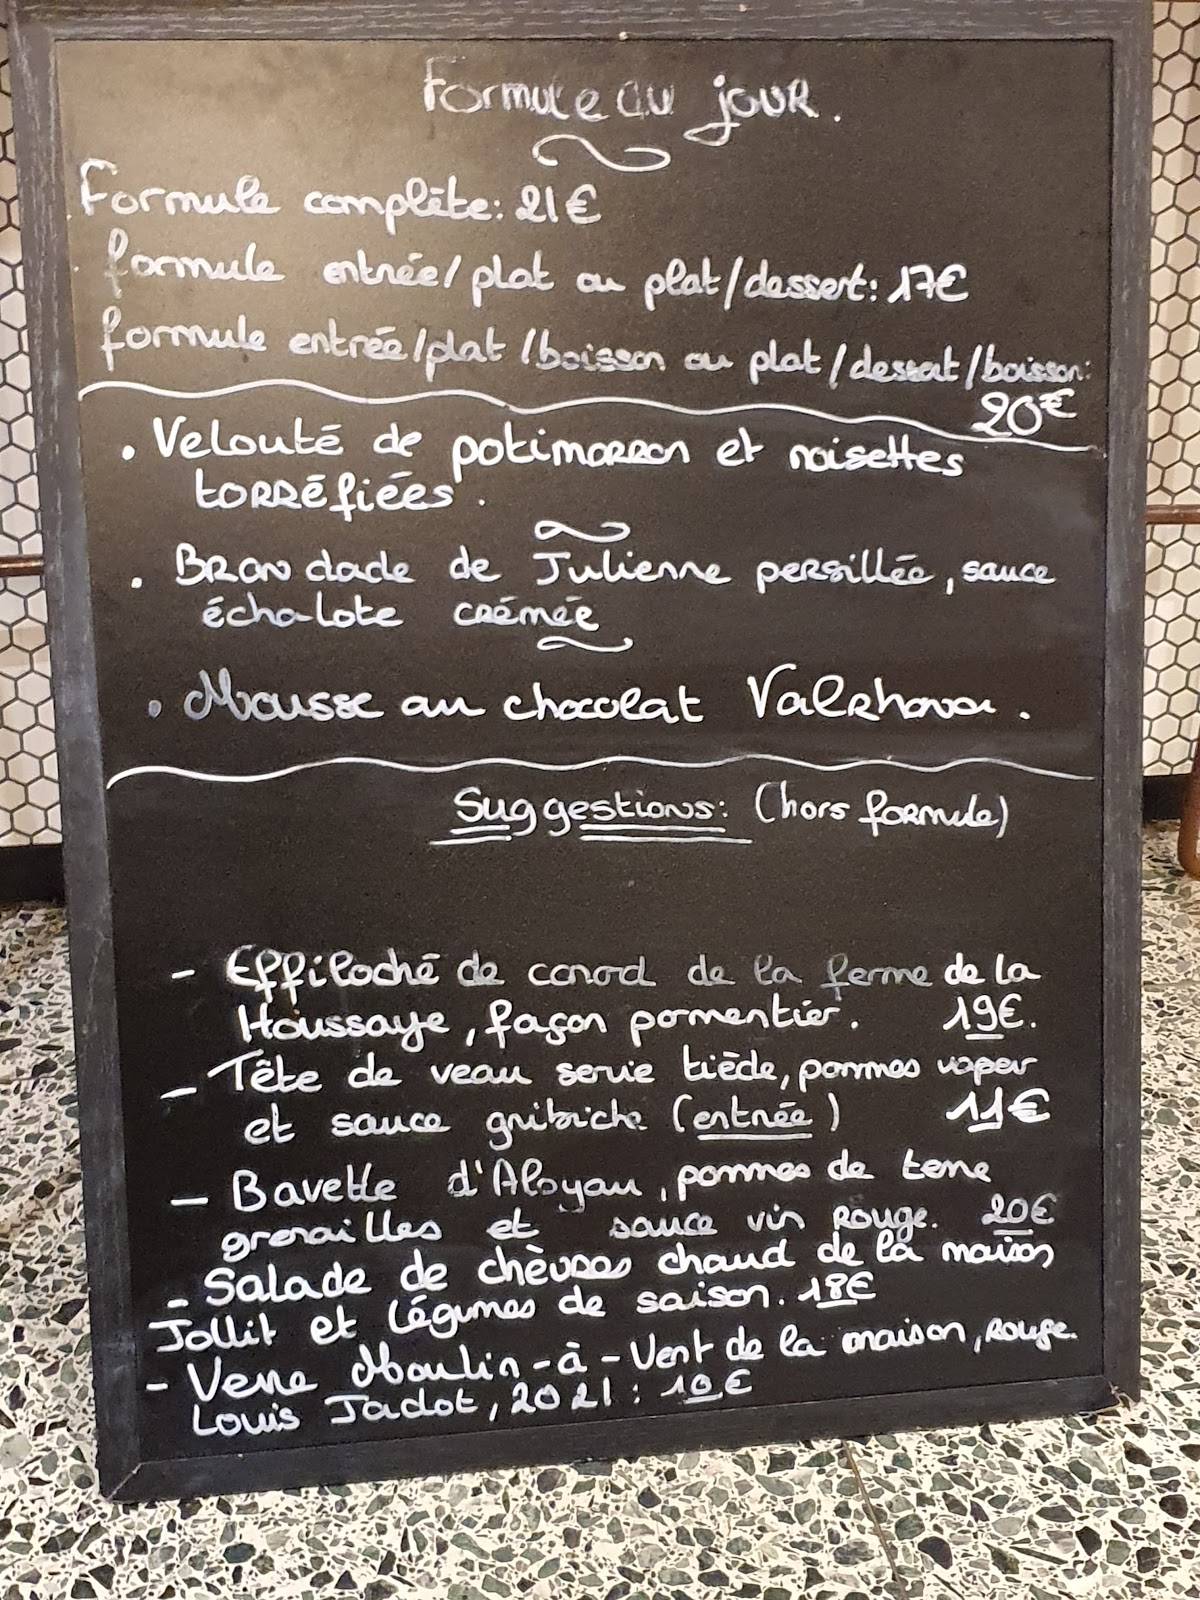 Formule du jour.
Formule complète: 21€
formule entrée/plat ou plat/dessert: 17€
formule entrée/plat/boisson ou plat/dessert/boisson:
20€
• Velouté de potimarron et noisettes
torréfiées.
• Brandade de Julienne persillée, sauce
échalote crémée
• Mousse au chocolat Valrhona.
Suggestions: (hors formule)
- Effiloché de canard de la ferme de la
Houssaye, façon parmentier. 19€.
- Tête de veau servie tiède, pommes vapeur
et sauce gribiche (entrée) 11€
- Bavette d'Aloyau, pommes de terre
grenailles et sauce vin rouge. 20€
- Salade de chèvres chaud de la maison
Jollit et légumes de saison. 18€
- Verre Moulin-à-Vent de la maison, rouge.
Louis Jadot, 2021: 10€